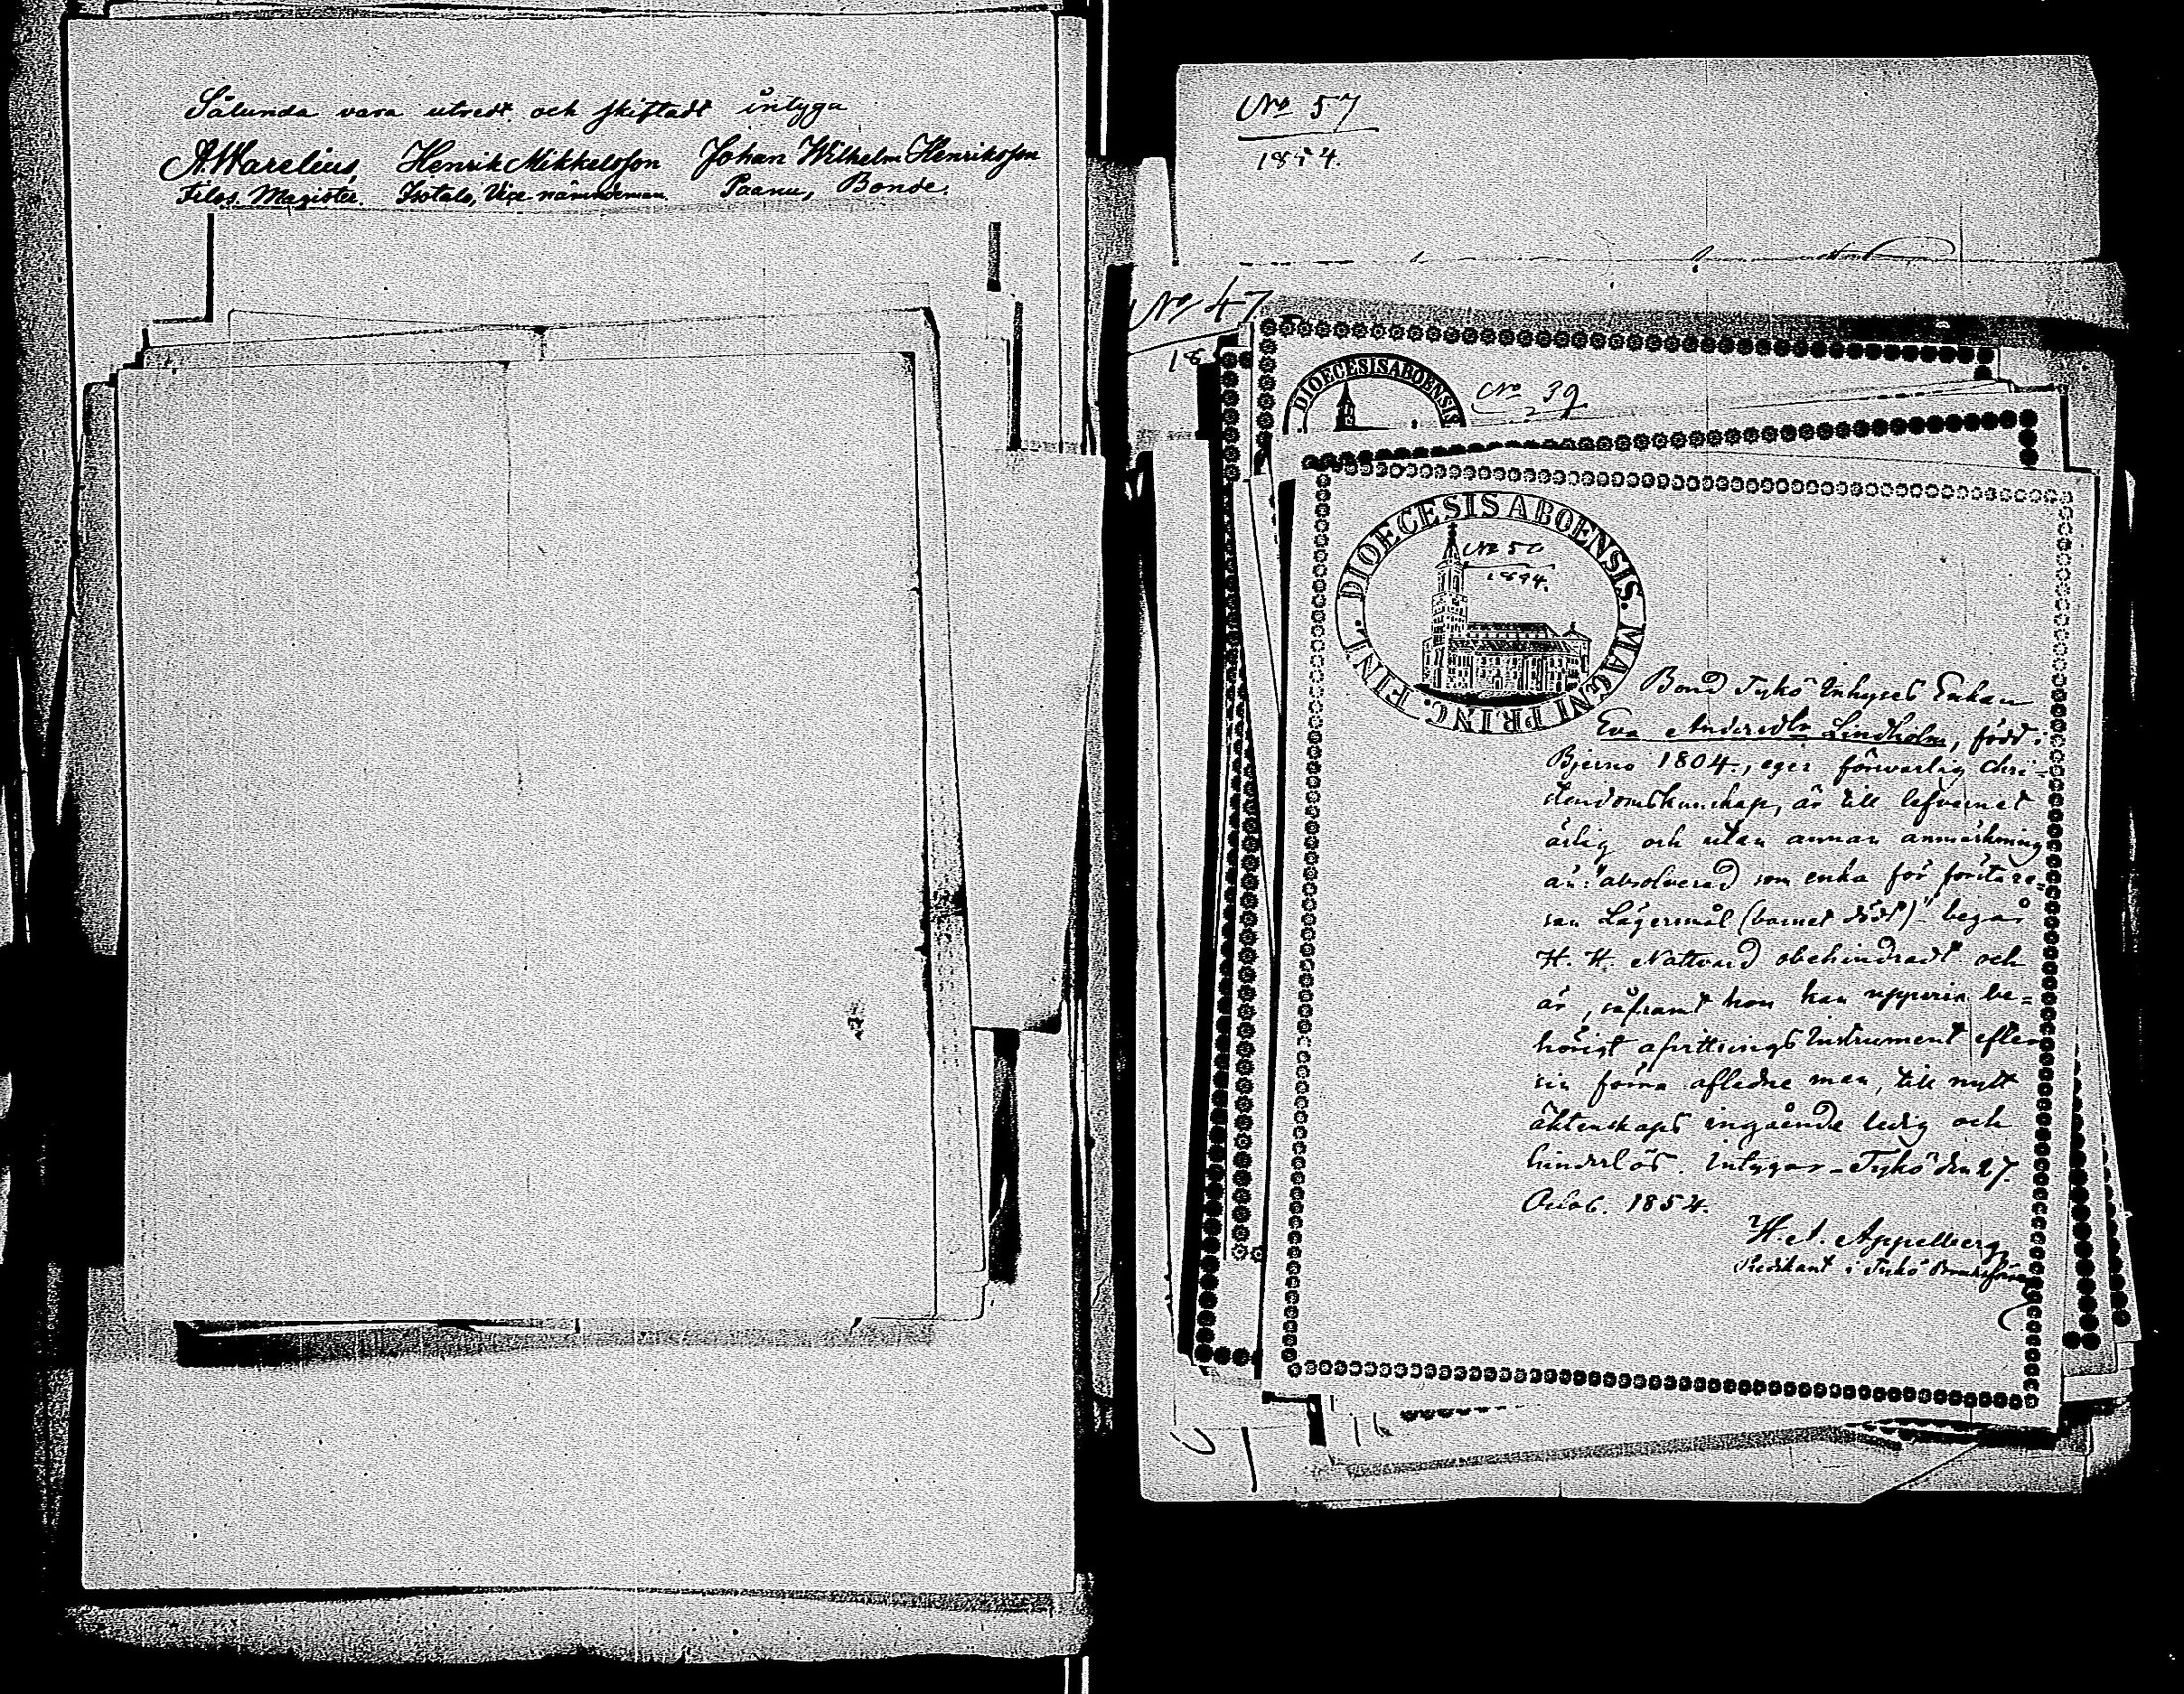 Sålunda vara utredt och skiftadt intyga
A. Warelius, Henrik Mikkelsson Johan Wilhelm Henriksson
Filos. Magister. Isotalo, Vice nämndeman. Paanu, Bonde.
No 57
1854.
No 47
18
DIOECESIS ABOENSIS
No 39
DIOECESIS ABOENSIS. MAGNI PRINC. FINL.
No 50
1854.
Tykö Inhyses Enkan
Eva Andersdr Lindholm, född i
Bjerno 1804., eger försvarlig chri-
stendomskunskap, är till lefvernet
ärlig och utan annan anmärkning
än: "absolverad som enka för första re-
san Lägersmål (barnet dödt)" begår
H. H. Nattvard obehindradt och
är, såframt hon kan uppvisa be=
hörigt afvittrings Instrument efter
sin förra afledne man, till nytt
äktenskaps ingående ledig och
hinderlös. Intygar _ Tykö den 27.
Octob. 1854.
H. A. Appelberg
Predikant i Tykö